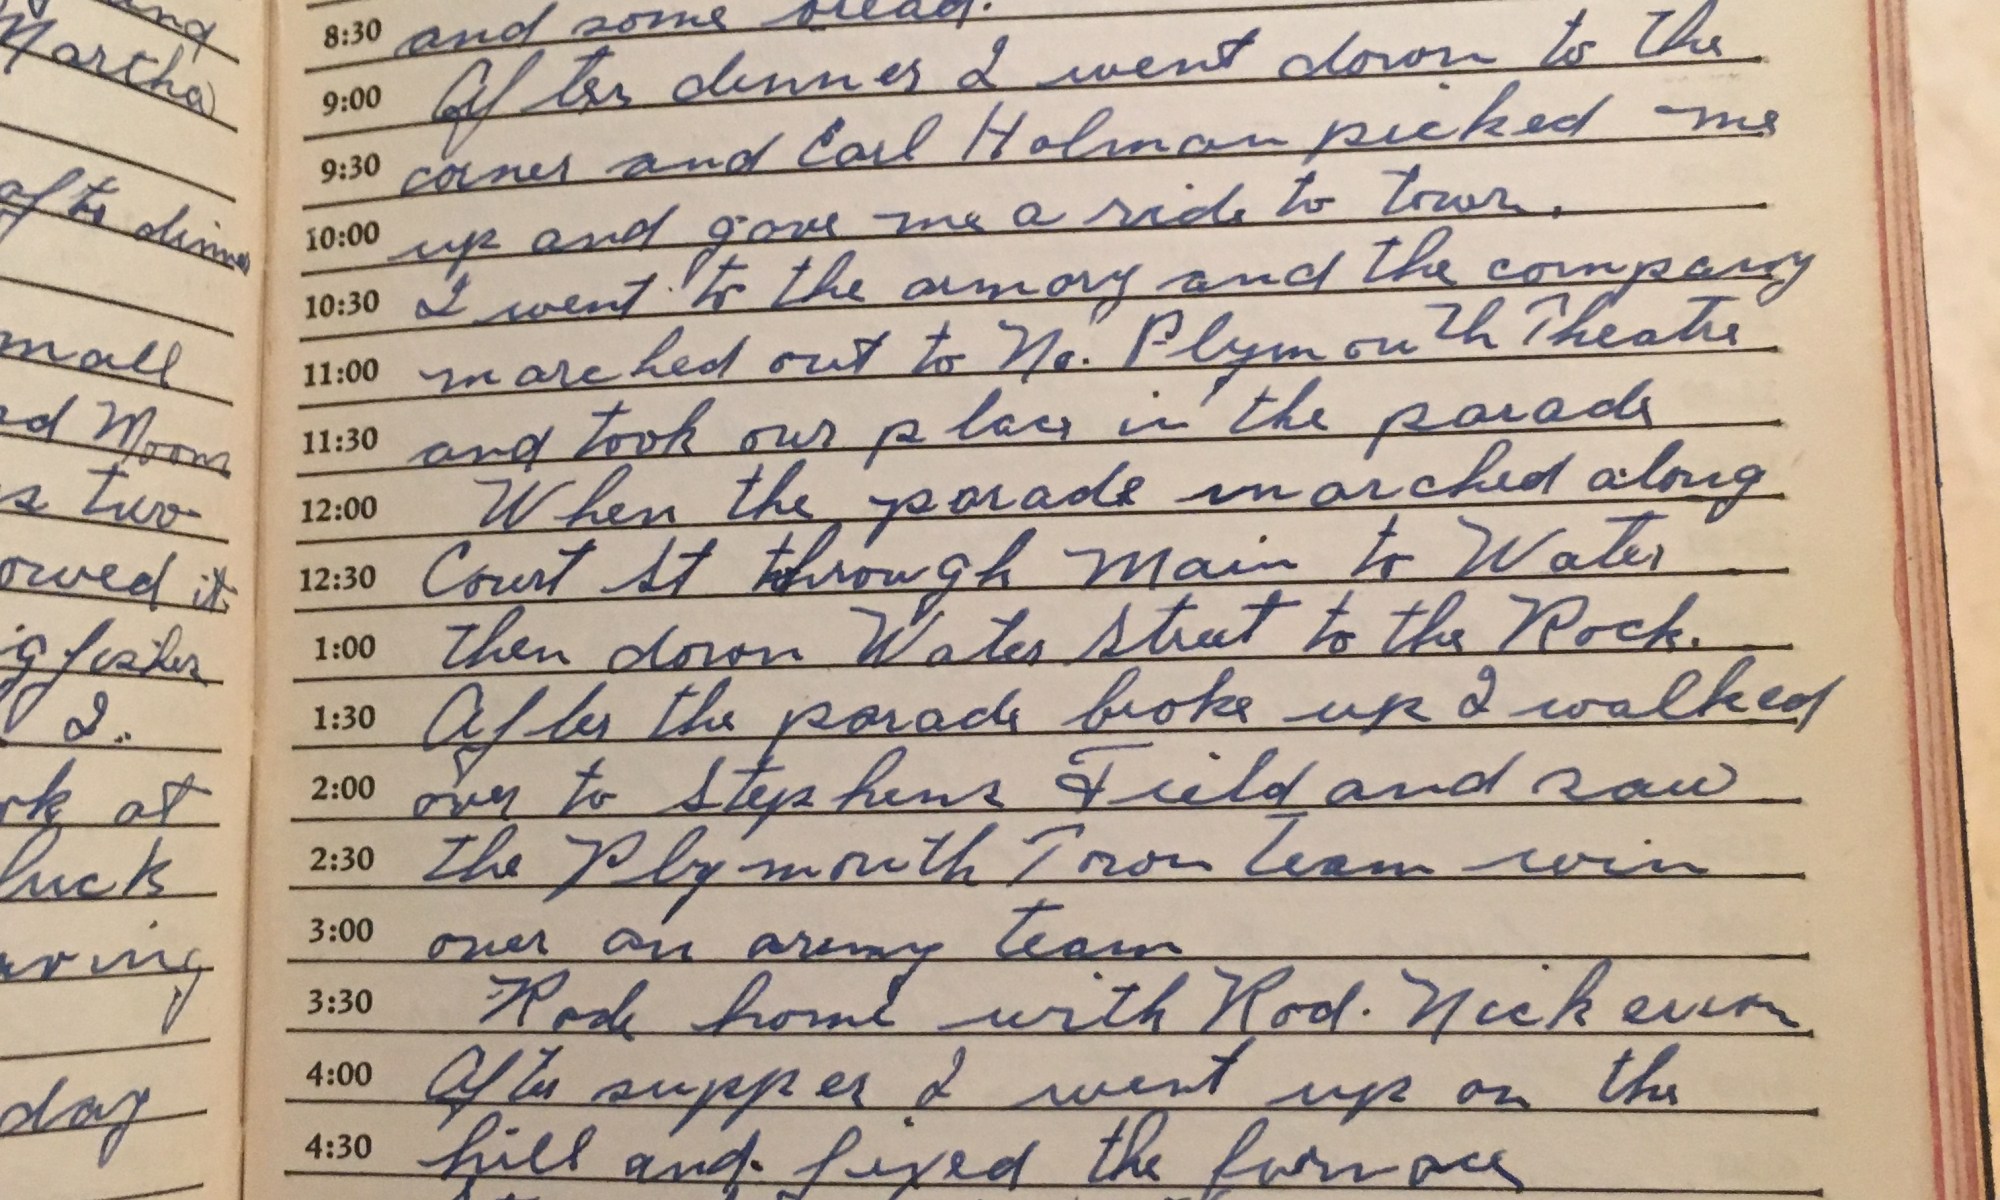 and
Martha
after dinner
mall
Moon
two
owed it
I.
at
luck
day
8:30 and some bread.
9:00 After dinner I went down to the
9:30 corner and Carl Holman picked me
10:00 up and gave me a ride to town.
10:30 I went to the armory and the company
11:00 marched out to No. Plymouth Theatre
11:30 and took our place in the parade
12:00 When the parade marched along
12:30 Court St through Main to Water
1:00 then down Water Street to the Rock.
1:30 After the parade broke up I walked
2:00 over to Stephens Field and saw
2:30 the Plymouth Town Team win
3:00 over an army team
3:30 Rode home with Rod. Nickerson
4:00 After supper I went up on the
4:30 hill and fixed the furnace